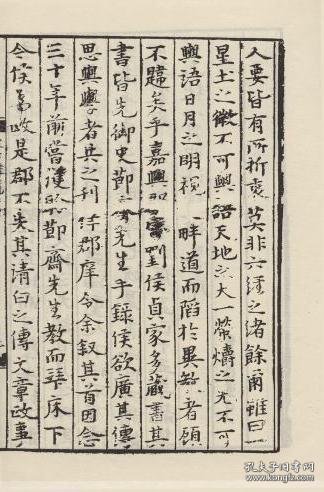 人要皆有所折衷莫非六經之緒餘爾雖曰
星土之微不可與語天地之大一熒爝之光不可
與語日月之明視畔道而陷於異教者顧
不韙矣乎嘉興劉侯貞家多藏書其
書皆先御史節齋先生手錄侯欲廣其傳
思與學者共之刊于郡庠令余叙其首因念
三十年前嘗獲聆節齋先生教而拜床下
今侯為政是郡不失其清白之傳文章政事
孔夫子旧书网
www.kongfz.com